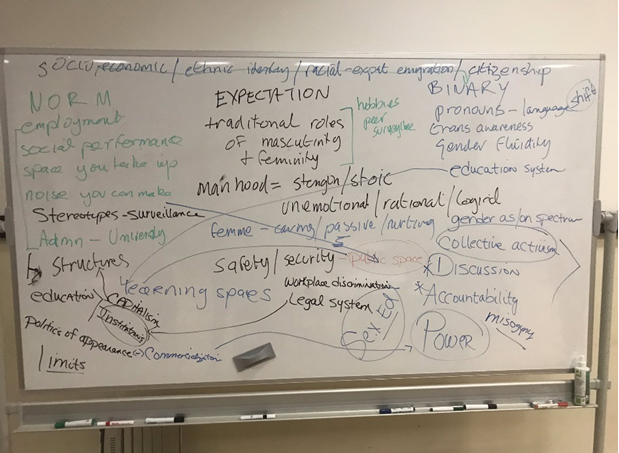 SOCIO, economic / ethnic identity / racial - expat emigration / citizenship
NORM
employment
social performance
space you take up
noise you can make
Stereotypes - Surveillance
Admn - University
Structures
education
CAPITALISM
Institutions
Politics of appearance
Commercialization
limits
EXPECTATION
traditional roles
of masculinity
+ feminity
hobbies
peer
manhood = strength/stoic
unemotional/rational/logical
femme - caring/passive/nurturing
safety/security - public space
learning spaces
workplace discrimination
Legal system
Sex Ed
BINARY
pronouns - language shift
trans awareness
Gender Fluidity
education system
gender as/on spectrum
Collective activism
* Discussion
* Accountability
misogyny
Power